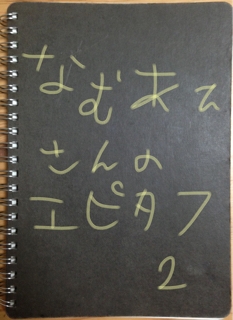 なむあえ
さんの
エピタフ
2